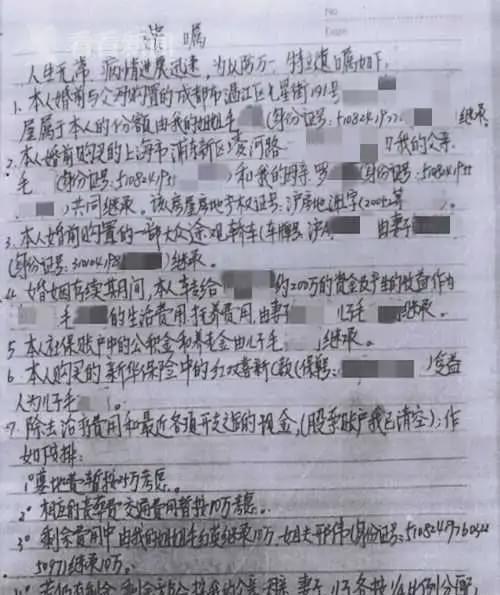 看看新闻
No
Date
遗嘱
人生无常 病情进展迅速,为以防万一,特立遗嘱如下:
1、本人婚前与父母购置的成都市温江区七星街191号
屋属于本人的份额由我的姐姐毛 (身份证号:5108241972 )继承。
2、本人婚前购买的上海市浦东新区凌河路 我的父亲
毛 (身份证号:510824195 )和我的母亲罗 (身份证号:51082419
)共同继承。该房屋房地产权证号:沪房地浦字(2005)第
3、本人婚前购置的一部大众途观轿车(车牌号沪A 由妻子
(身份证号:31010419 )继承。
4、婚姻存续期间,本人转给 约200万的资金及产生的收益作为
毛 的生活费用,抚养费用,由妻子 儿子毛 继承。
5、本人社保账户中的公积金和养老金由儿子毛 继承。
6、本人购买的新华保险中的红双喜新C款(保单号: )受益
人为儿子毛 。
7、除去治疗费用和最近各项开支之后的现金,(股票账户我已清空);作
如下安排:
1°墓地费暂按 万考虑。
2°相应的丧葬费 交通费用暂按10万考虑。
3°剩余费用中由我的姐姐毛 继承10万,姐夫邢伟(身份证号:510824197603
5097)继承10万。
剩余部分 我的父亲 母亲 妻子 儿子各按1/4比例分配,